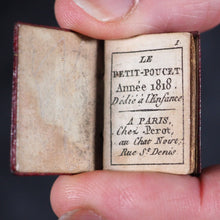 1
LE
PETIT-POUCET
Année 1818.
Dédié à l'Enfance
A PARIS,
Chez Perot,
au Chat Noir,
Rue St Denis